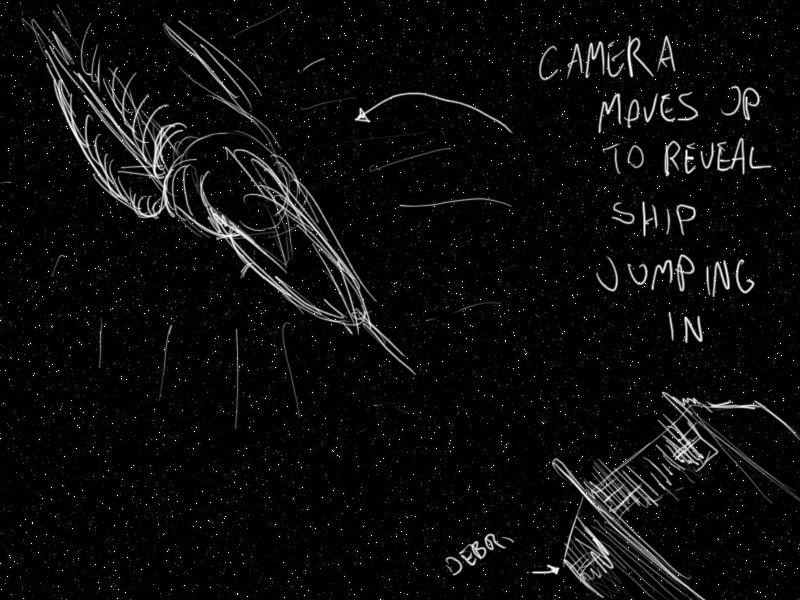 CAMERA
MOVES UP
TO REVEAL
SHIP
JUMPING
IN